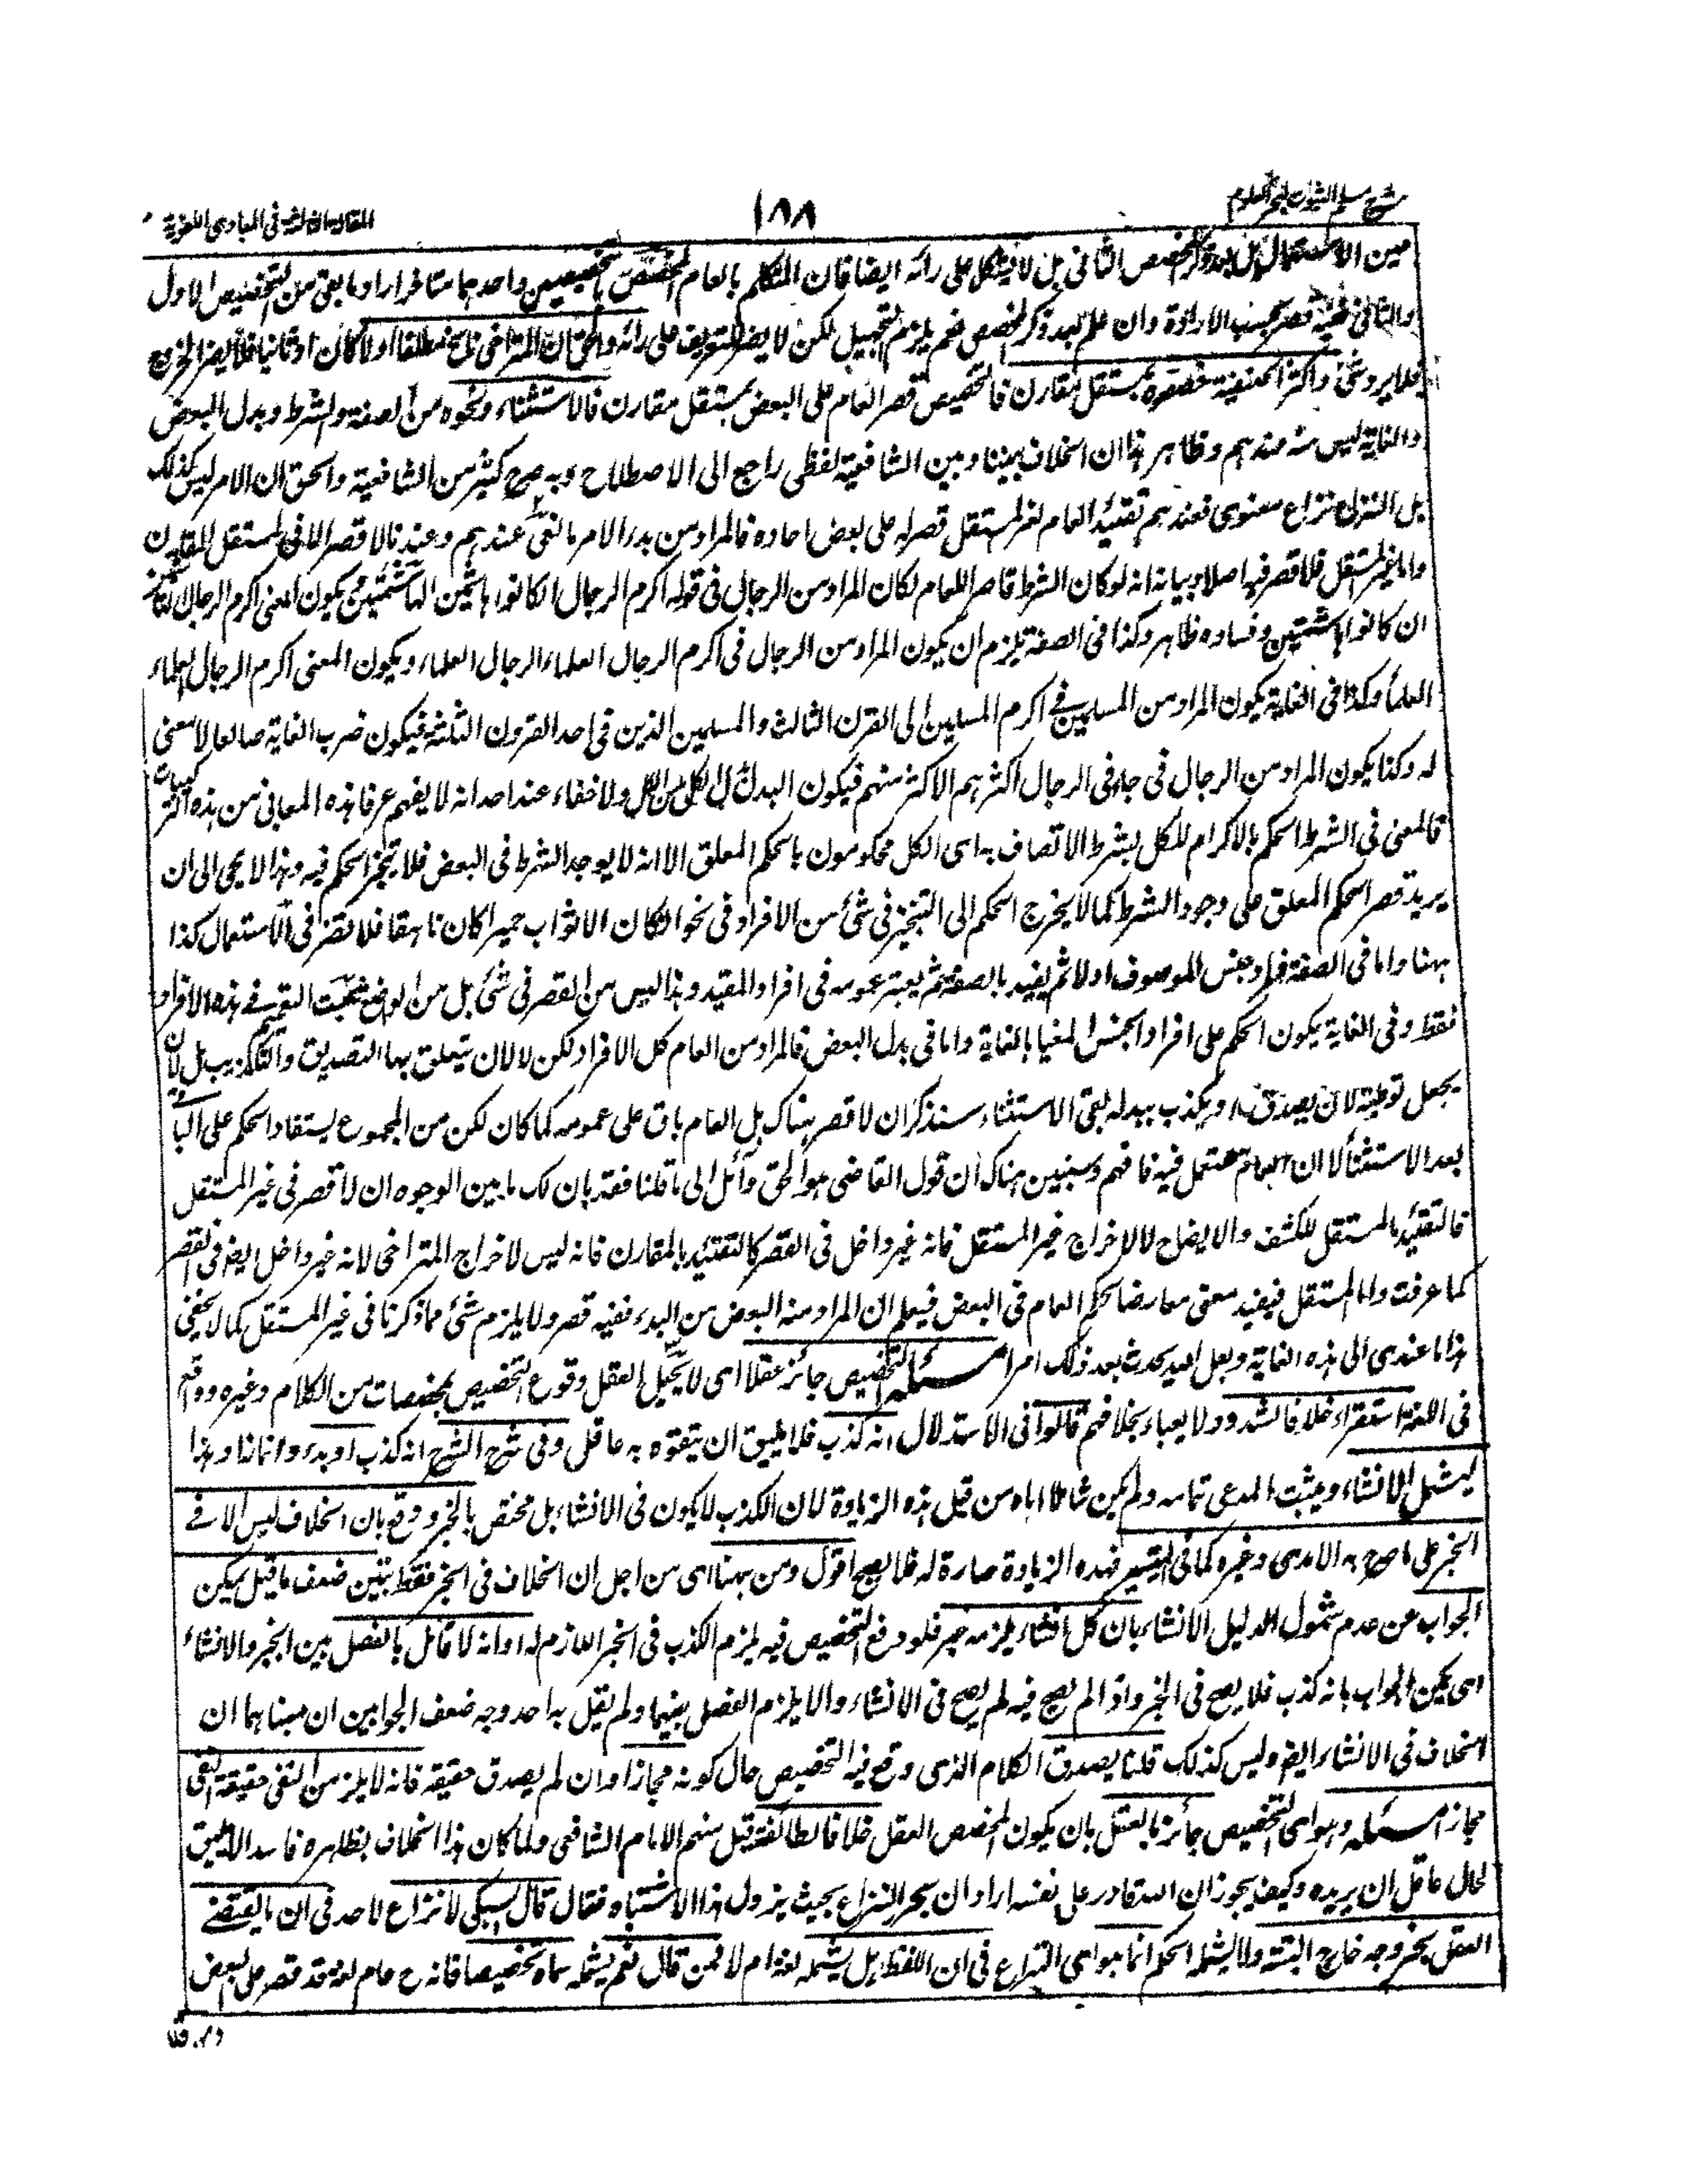 شرح مسلم الثبوت لبحر العلوم
١٨٨
المقالة الثالثة فى المبادى اللغوية
حين الاستعمال بل بعد ذكر المخصص الثانى بل لا يشكل على رائه ايضا فان المتكلم بالعام المخصص بتخصيصين واحدهما متاخر اراد ما بقى من التخصيص الاول
والثانى ففيه قصر بحسب الارادة وان علم بعد ذكر المخصص نعم يلزم التجهيل لكن لا يضر التعريف على رائه والحق ان المتراخى ناسخ مطلقا اولا كان او ثانيا فلا يضر الخروج
فلا يرد شئ واكثر الحنفية خصصوه بمستقل مقارن فالتخصيص قصر العام على البعض بمستقل مقارن فالاستثناء ونحوه من الصفة والشرط وبدل البعض
والغاية ليس منه عندهم وظاهر هذا ان الخلاف بيننا وبين الشافعية لفظى راجع الى الاصطلاح وبه صرح كثير من الشافعية والحق ان الامر ليس كذلك
بل النزاع نزاع معنوى فعندهم تقييد العام لغير المستقل قصر له على بعض احاده فالمراد من بدء الامر ما بقى عندهم وعندنا لا قصر الا فى المستقل المقارن
واما غير المستقل فلا قصر فيه اصلا وبيانه انه لو كان الشرط قاصرا للعام لكان المراد من الرجال فى قوله اكرم الرجال ان كانوا هاشميين الهاشميين فيكون المعنى اكرم الرجال
ان كانوا هاشميين وفساده ظاهر وكذا فى الصفة يلزم ان يكون المراد من الرجال فى اكرم الرجال العلماء الرجال العلماء ويكون المعنى اكرم الرجال العلماء
العلماء وكذا فى الغاية يكون المراد من المسلمين فى اكرم المسلمين الى القرن الثالث والمسلمين الذين فى احد القرون الثلثة فيكون ضرب الغاية ضائعا لا معنى
له وكذا يكون المراد من الرجال فى جاءنى الرجال اكثرهم الاكثر منهم فيكون البدل بدل الكل من الكل ولا خفاء عند احد انه لا يفهم عرفا هذه المعانى من هذه التركيبات
فالمعنى فى الشرط الحكم بالاكرام للكل بشرط الاتصاف به اى الكل محكومون بالحكم المعلق الا انه لا يوجد الشرط فى البعض فلا يتنجز الحكم فيه وهذا لا يجئ الى ان
يريد قصر الحكم المعلق على وجود الشرط كما لا يخرج الحكم الى التنجيز فى شئ من الافراد فى نحو ان كان الاثواب حميرا كان ناهقا فلا قصر فى الاستعمال كذا
ههنا واما فى الصفة فيراد جنس الموصوف اولا ثم يقيد بالصفة ثم يعتبر عمومه فى افراد المقيد وهذا ليس من القصر فى شئ بل من الوضع يثبت التعميم فى هذه الافراد
فقط وفى الغاية يكون الحكم على افراد الجنس المغيا بالغاية واما فى بدل البعض فالمراد من العام كل الافراد لكن لا لان يتعلق بها التصديق والتكذيب بل لان
يجعل توطية لان يصدق او يكذب ببدله بقى الاستثناء سنذكر ان لا قصر هناك بل العام باق على عمومه كما كان لكن من المجموع يستفاد الحكم على الباقى
بعد الاستثناء لا ان العام مستعمل فيه فافهم وسنبين هناك ان قول القاضى هو الحق وآئل الى ما قلنا فقد بان لك ما بين الوجوه ان لا قصر فى غير المستقل
فالتقييد بالمستقل للكشف والايضاح لا لاخراج غير المستقل فانه غير داخل فى القصر كالتقييد بالمقارن فانه ليس لاخراج المتراخى لانه غير داخل ايضا فى القصر
كما عرفت واما المستقل فيفيد معنى معارضا لحكم العام فى البعض فيعلم ان المراد منه البعض من البدء ففيه قصر ولا يلزم شئ مما ذكرنا فى غير المستقل كما لا يخفى
هذا ما عندى الى هذه الغاية ولعل الله يحدث بعد ذلك امرا مسئلة التخصيص جائز عقلا اى لا يحيل العقل وقوع التخصيص بمخصصات من الكلام وغيره وواقع
فى اللغة استقراء خلافا لشذوذ ولا يعباء بخلافهم قالوا فى الاستدلال انه كذب فلا يليق ان يتفوه به عاقل وفى شرح الشرح انه كذب او بدء وانما زاد هذا
ليشمل الانشاء ويثبت المدعى تمامه ولم يكن شاملا اياه من قبل هذه الزيادة لان الكذب لا يكون فى الانشاء بل مختص بالخبر ودفع بان الخلاف ليس الا فى
الخبر على ما صرح به الامدى وغيره كما فى التيسير فهذه الزيادة ضارة له فلا يصح اقول ومن ههنا اى من اجل ان الخلاف فى الخبر فقط تبين ضعف ما قيل يمكن
الجواب عن عدم شمول الدليل الانشاء بان كل انشاء يلزمه خبر فلو وقع التخصيص فيه يلزم الكذب فى الخبر اللازم له او انه لا قائل بالفصل بين الخبر والانشاء
اى يمكن الجواب بانه كذب فلا يصح فى الخبر واذا لم يصح فيه لم يصح فى الانشاء والا يلزم الفصل بينهما ولم يقل به احد وجه ضعف الجوابين ان مبناهما ان
الخلاف فى الانشاء ايضا وليس كذلك قلنا يصدق الكلام الذى وقع فيه التخصيص حال كونه مجازا وان لم يصدق حقيقة فانه لا يلزم من النفى حقيقة النفى
مجازا مسئلة وهو اى التخصيص جائز بالعقل بان يكون المخصص العقل خلافا لطائفة قيل منهم الامام الشافعى ولما كان هذا الخلاف بظاهره فاسدا لا يليق
لحال عاقل ان يريده وكيف يجوز ان الله قادر على نفسه اراد ان يحرر النزاع بحيث يزول هذا الاشتباه فقال قال السبكى لا نزاع لاحد فى ان ما يقتضى
العقل بخروجه خارج البتة ولا يشمله الحكم انما هو اى النزاع فى ان اللفظ هل يشمله لغة ام لا فمن قال نعم يشمله سماه تخصيصا فانه ح عام لغة قد قصر على البعض